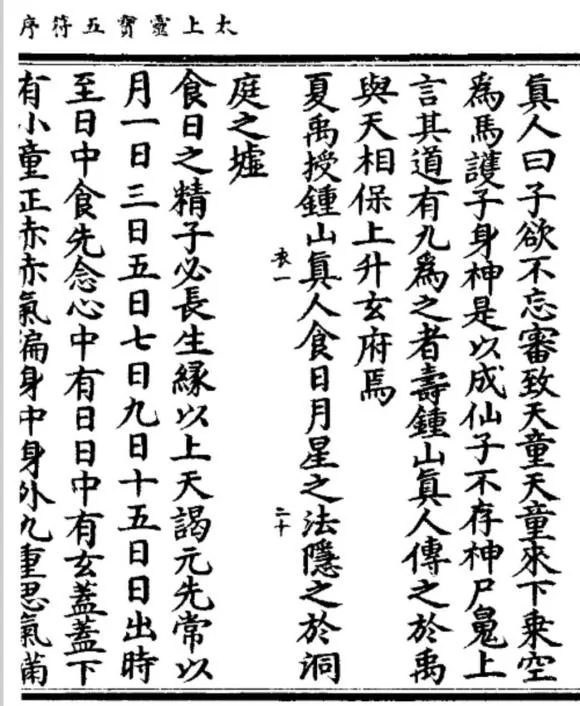 太上靈寶五符序
真人曰子欲不忘審致天童天童來下乗空
為馬護子身神是以成仙子不存神尸鬼上
言其道有九為之者壽鍾山真人傳之於禹
與天相保上升玄府焉
夏禹授鍾山真人食日月星之法隱之於洞
衣一
二十
庭之墟
食日之精子必長生縁以上天謁元先常以
月一日三日五日七日九日十五日日出時
至日中食先念心中有日日中有玄蓋蓋下
有小童正赤赤氣徧身中身外九重思氣滿